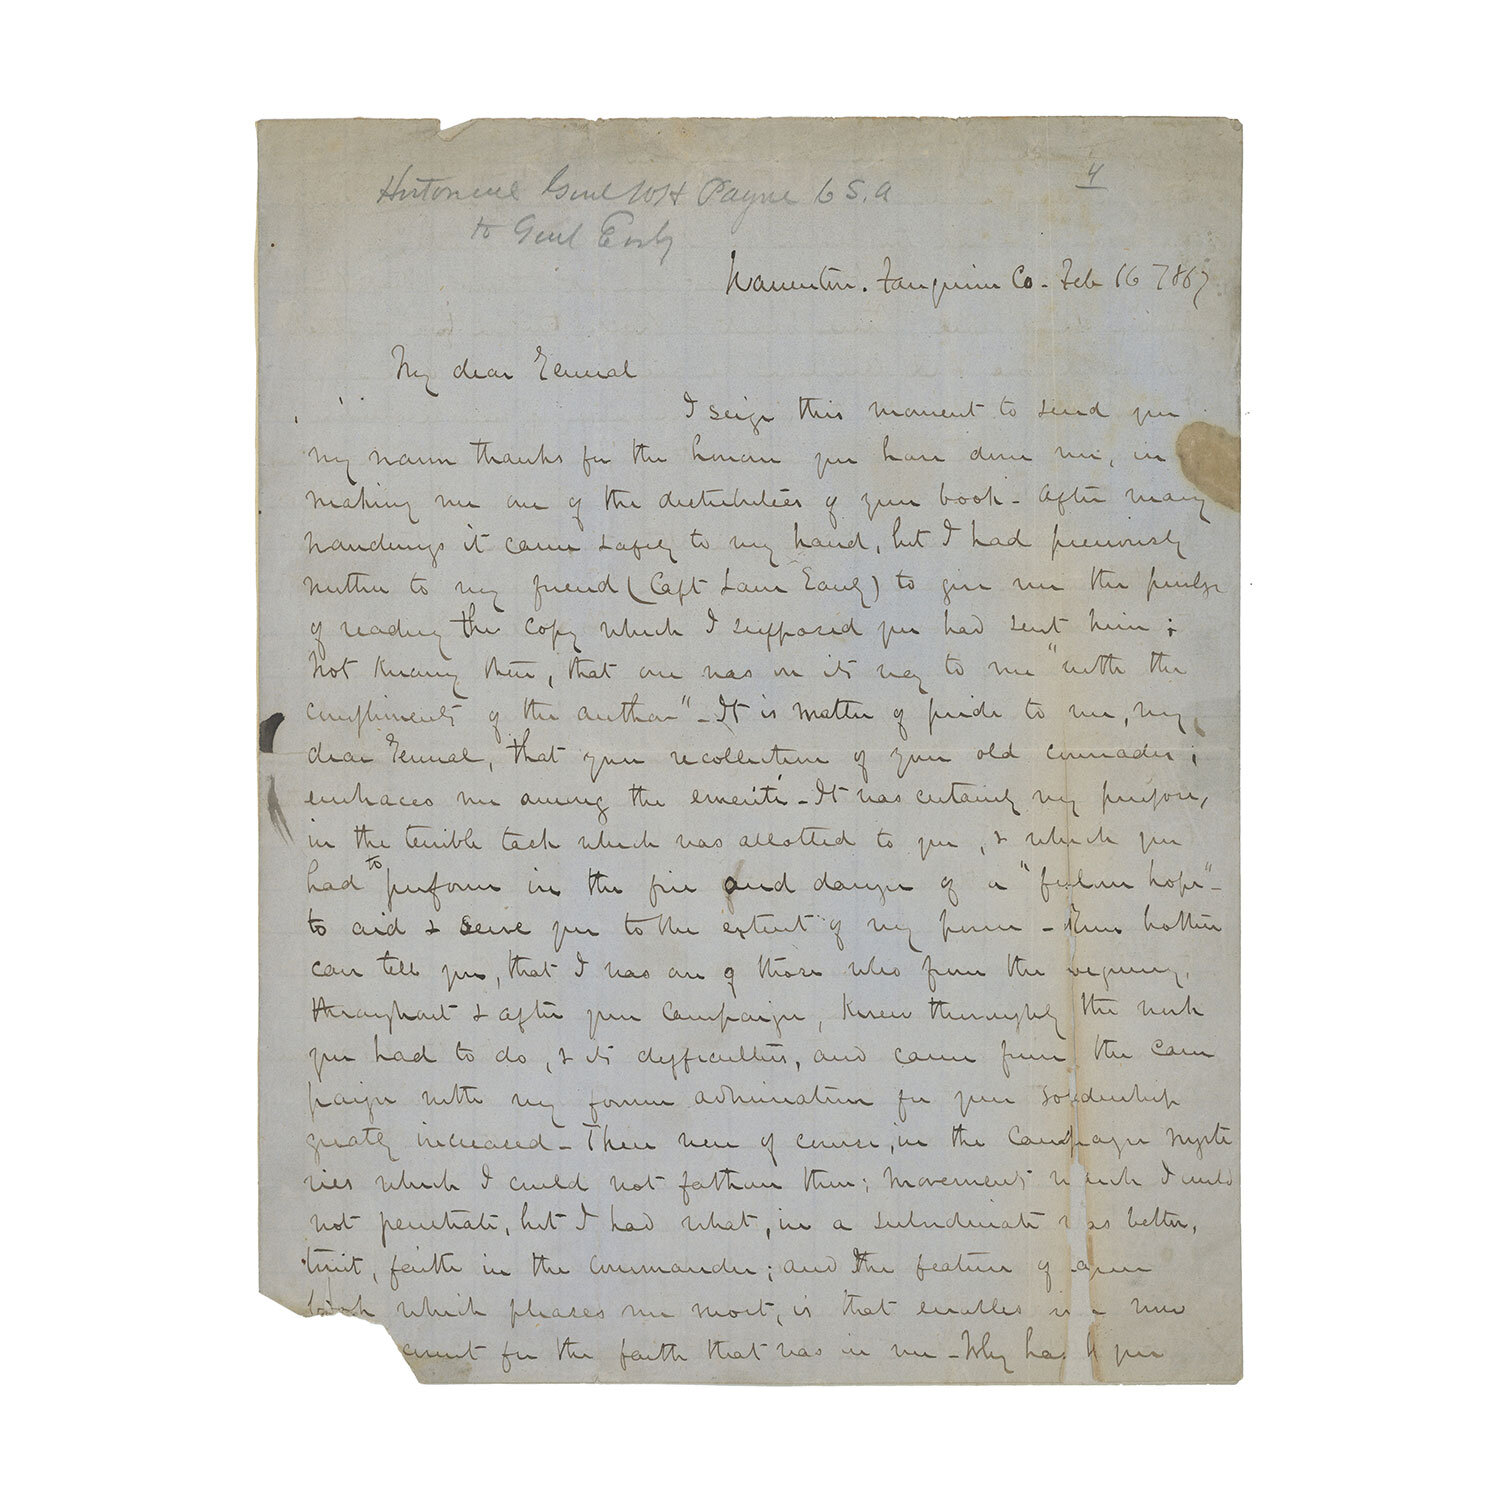 Historical Genl WH Payne C S. A
4
to Genl Early
Warrenton. Fauquier Co - Feb 16 1867
My dear General
I seize this moment to send you
my warm thanks for the honor you have done me, in
making me one of the distributees of your book - After many
wanderings it came safely to my hand, but I had previously
written to my friend (Capt Sam Early) to give me the privlge
of reading the copy which I supposed you had sent him;
not knowing then, that one was on its way to me "with the
compliments of the author" - It is matter of pride to me, my
dear General, that your recollection of your old comrades;
embraces me among the emeriti - It was certainly my purpose,
in the terrible task which was allotted to you, & which you
had to perform in the fire and danger of a "forlorn hope" -
to aid & serve you to the extent of my power - Your brother
can tell you, that I was one of those who from the beginning,
throughout & after your campaign, knew thoroughly the work
you had to do, & its difficulties, and came from the cam
paign with my former admiration for your soldiership
greatly increased - There were of course, in the campaign myste
ries which I could not fathom then; movements which I could
not penetrate, but I had what, in a subordinate was better,
trust, faith in the commander; and the feature of your
book which pleases me most, is that enables me now
count for the faith that was in me - Why had you